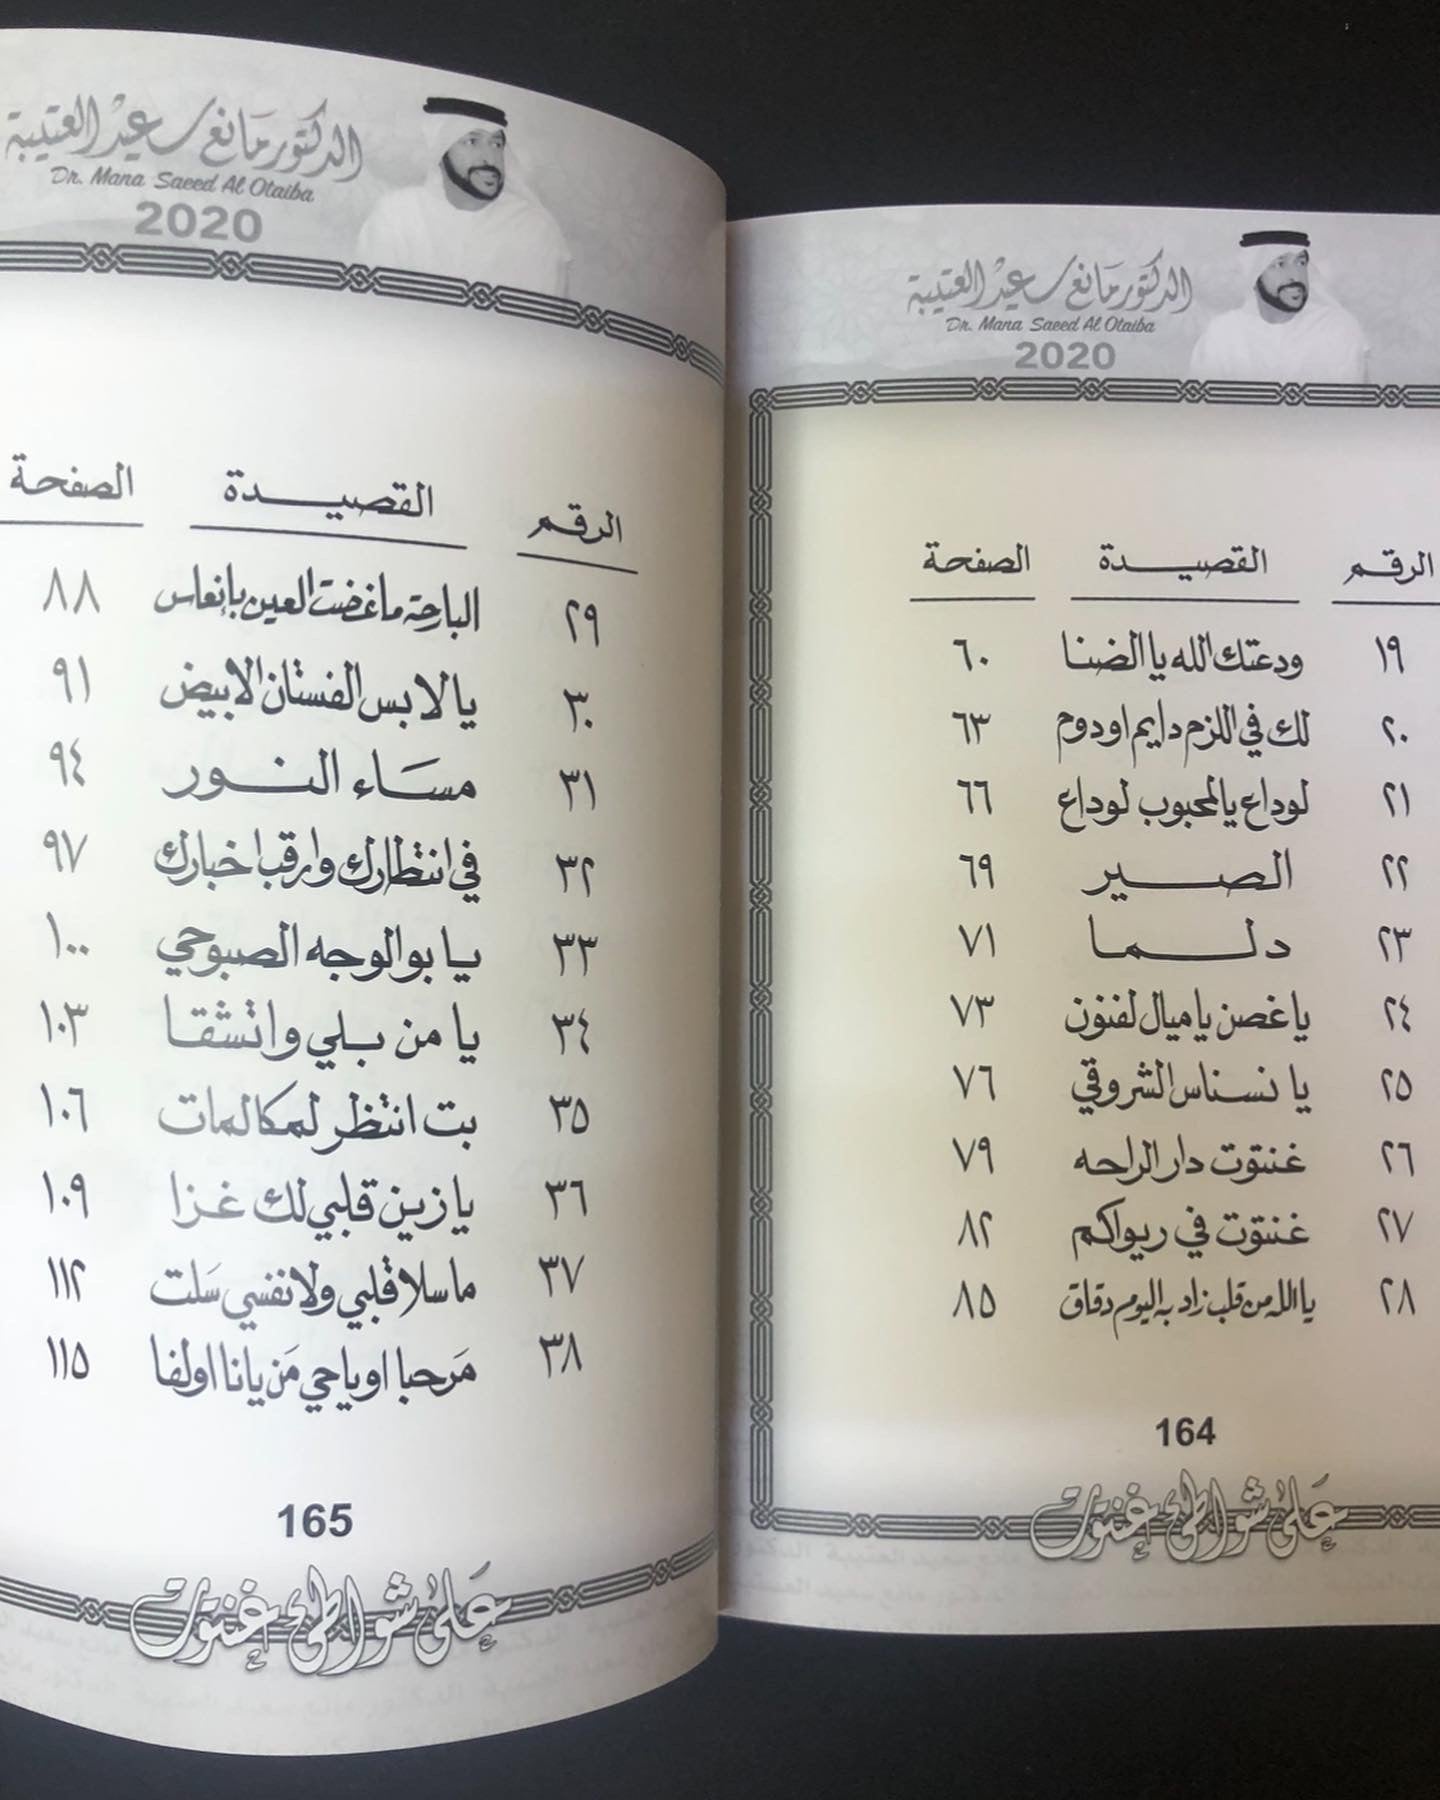 الدكتور مانع سعيد العتيبة
Dr. Mana Saeed Al Otaiba
2020
الرقم القصيدة الصفحة
١٩ ودعتك الله يا الضنا ٦٠
٢٠ لك في اللزم دايم اودوم ٦٣
٢١ لوداع يالمحبوب لوداع ٦٦
٢٢ الصير ٦٩
٢٣ دلما ٧١
٢٤ يا غصن يا ميال لفنون ٧٣
٢٥ يا نسناس الشروقي ٧٦
٢٦ غنتوت دار الراحه ٧٩
٢٧ غنتوت في ريواكم ٨٢
٢٨ يا الله من قلب زاد به اليوم دقاق ٨٥
164
على شواطئ غنتوت
الدكتور مانع سعيد العتيبة
Dr. Mana Saeed Al Otaiba
2020
الرقم القصيدة الصفحة
٢٩ البارحة ما غضت العين بإنعاس ٨٨
٣٠ يا لابس الفستان الابيض ٩١
٣١ مساء النور ٩٤
٣٢ في انتظارك وارقب اخبارك ٩٧
٣٣ يا بو الوجه الصبوحي ١٠٠
٣٤ يا من بلي واتشقا ١٠٣
٣٥ بت انتظر لمكالمات ١٠٦
٣٦ يا زين قلبي لك غزا ١٠٩
٣٧ ما سلا قلبي ولا نفسي سَلت ١١٢
٣٨ مَرحبا اوياحي مَن يانا اولفا ١١٥
165
على شواطئ غنتوت